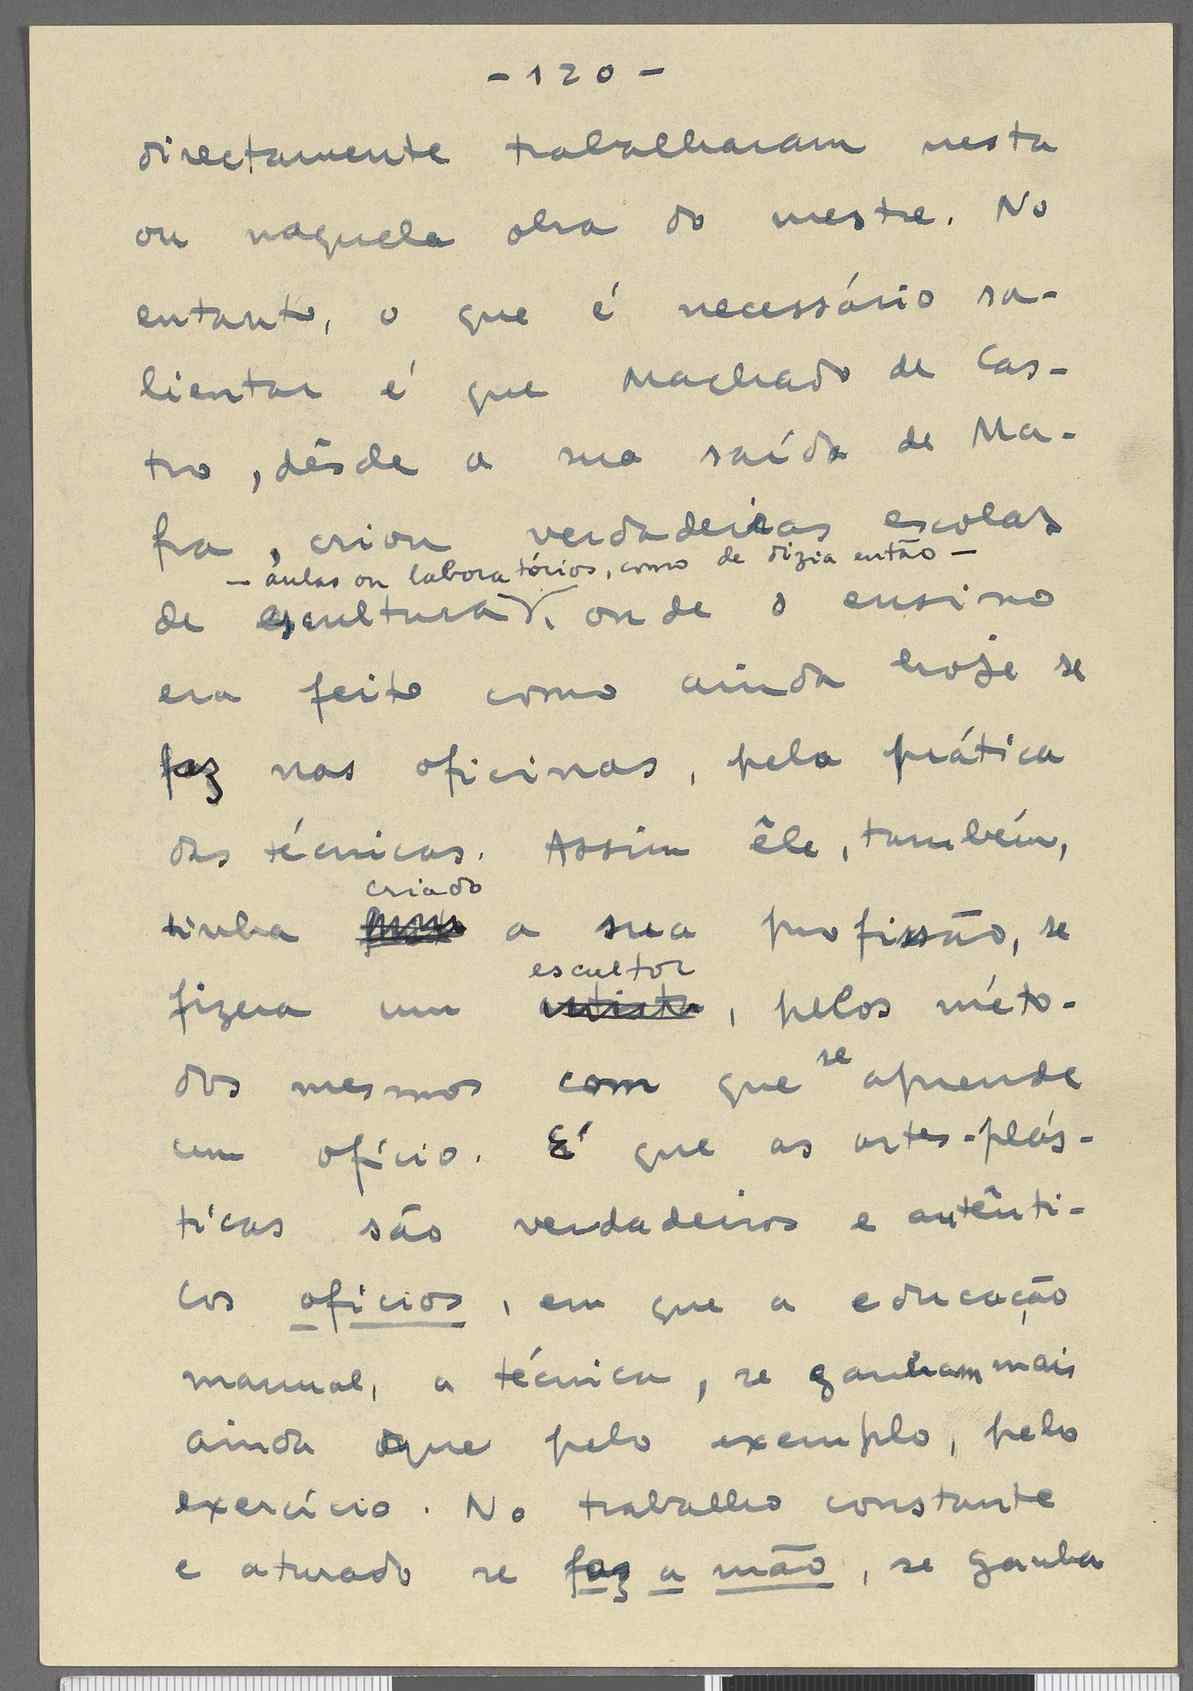 - 120 -
directamente trabalharam nesta
ou naquela obra do mestre. No
entanto, o que é necessário sa-
lientar é que Machado de Cas-
tro, désde a sua saída de Ma-
fra, criou verdadeiras escolas
- aulas ou laboratórios, como se dizia então -
de escultura, onde o ensino
era feito como ainda hoje se
faz nas oficinas, pela prática
das técnicas. Assim êle, também,
criado
tinha a sua profissão, se
escultor
fizera um artista, pelos méto-
se
dos mesmos com que aprende
um ofício. É que as artes-plás-
ticas são verdadeiros e autênti-
cos ofícios, em que a educação
manual, a técnica, se ganham mais
ainda que pelo exemplo, pelo
exercício. No trabalho constante
e aturado se faz a mão, se ganha